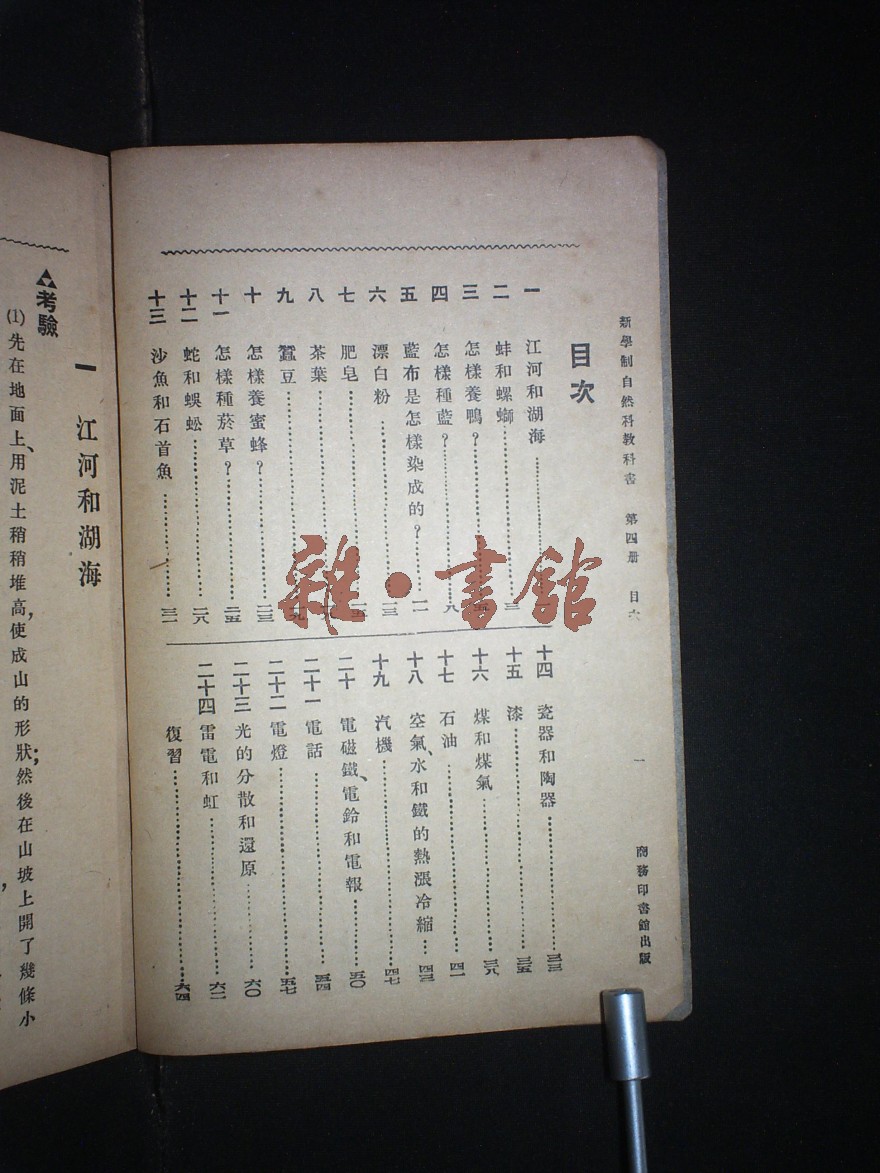 新學制自然科教科書 第四册 目次 一 商務印書館出版
目次
一 江河和湖海
二 蚌和螺螄 三
三 怎樣養鴨?
四 怎樣種藍? 八
五 藍布是怎樣染成的? 一一
六 漂白粉 一三
七 肥皂
八 茶葉
九 蠶豆 十九
十 怎樣養蜜蜂? 二三
十一 怎樣種菸草? 二五
十二 蛇和蜈蚣 二八
十三 沙魚和石首魚 三一
十四 瓷器和陶器 三三
十五 漆 三五
十六 煤和煤氣 三八
十七 石油 四一
十八 空氣、水和鐵的熱漲冷縮 四三
十九 汽機 四七
二十 電磁鐵、電鈴和電報 五〇
二十一 電話 五四
二十二 電燈 五七
二十三 光的分散和還原 六〇
二十四 雷電和虹 六二
復習 六四
雜·書館
一 江河和湖海
考驗
(1)先在地面上、用泥土稍稍堆高,使成山的形狀;然後在山坡上開了幾條小